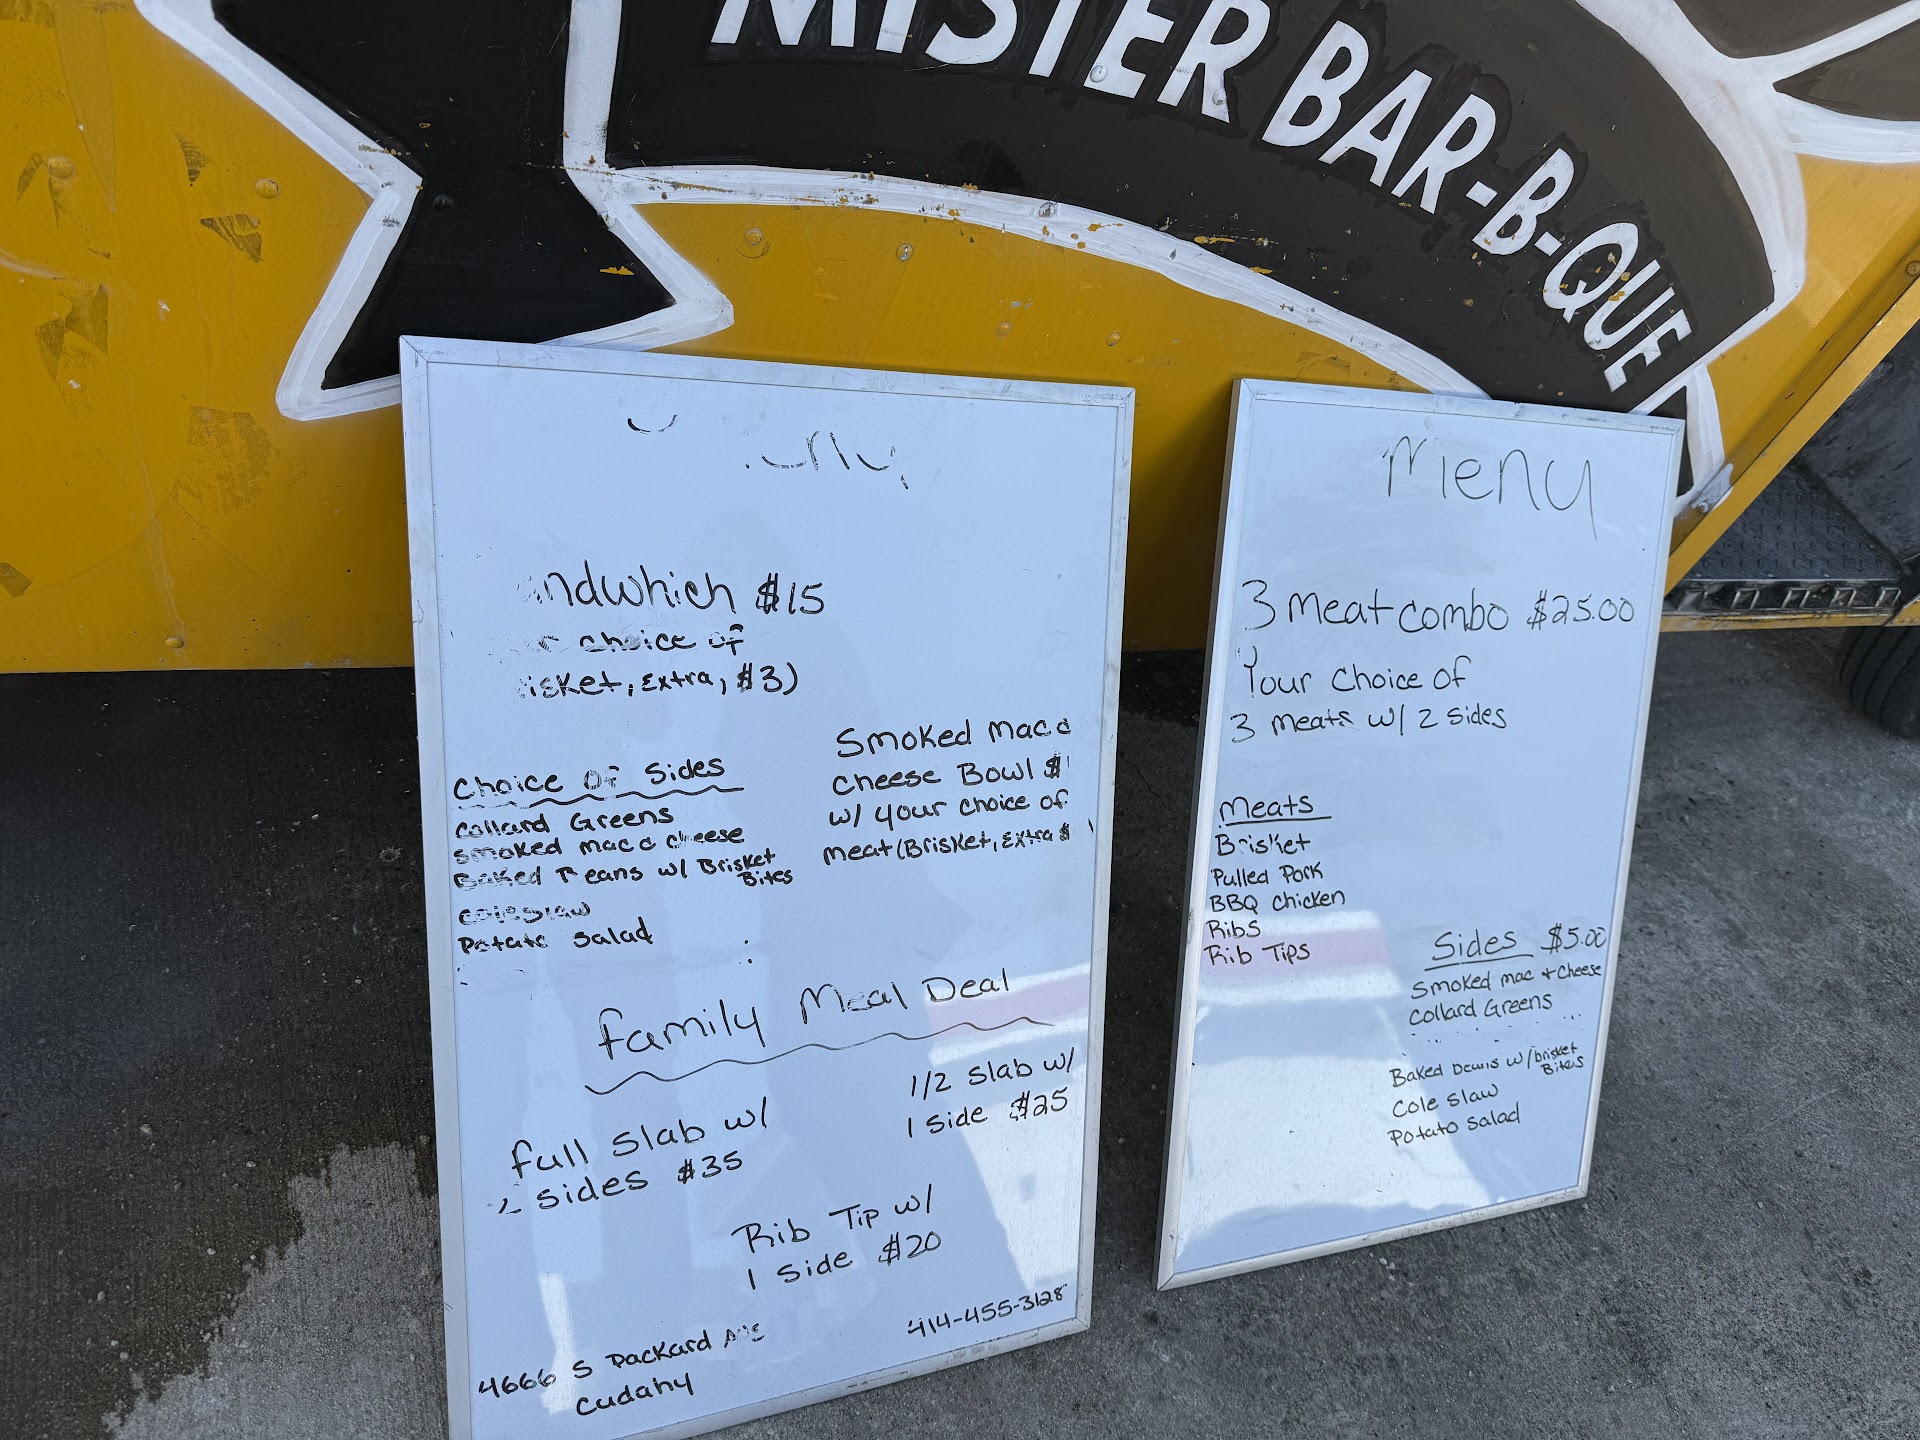 MISTER BAR-B-QUE
ndwhich $15
choice of
isket, Extra, $3)
Choice Of Sides
Collard Greens
Smoked mac & cheese
Baked Beans w/ Brisket
Bites
coleslaw
Potato salad
Smoked Mac &
Cheese Bowl $
w/ your choice of
meat (Brisket, Extra $
Family Meal Deal
Full Slab w/
2 sides $35
1/2 Slab w/
1 side $25
Rib Tip w/
1 side $20
4666 S Packard Ave
Cudahy
414-455-3128
Menu
3 Meat combo $25.00
Your Choice Of
3 meats w/ 2 sides
Meats
Brisket
Pulled Pork
BBQ chicken
Ribs
Rib Tips
Sides $5.00
Smoked mac + cheese
Collard Greens
Baked beans w/ brisket
Bites
Cole slaw
Potato salad